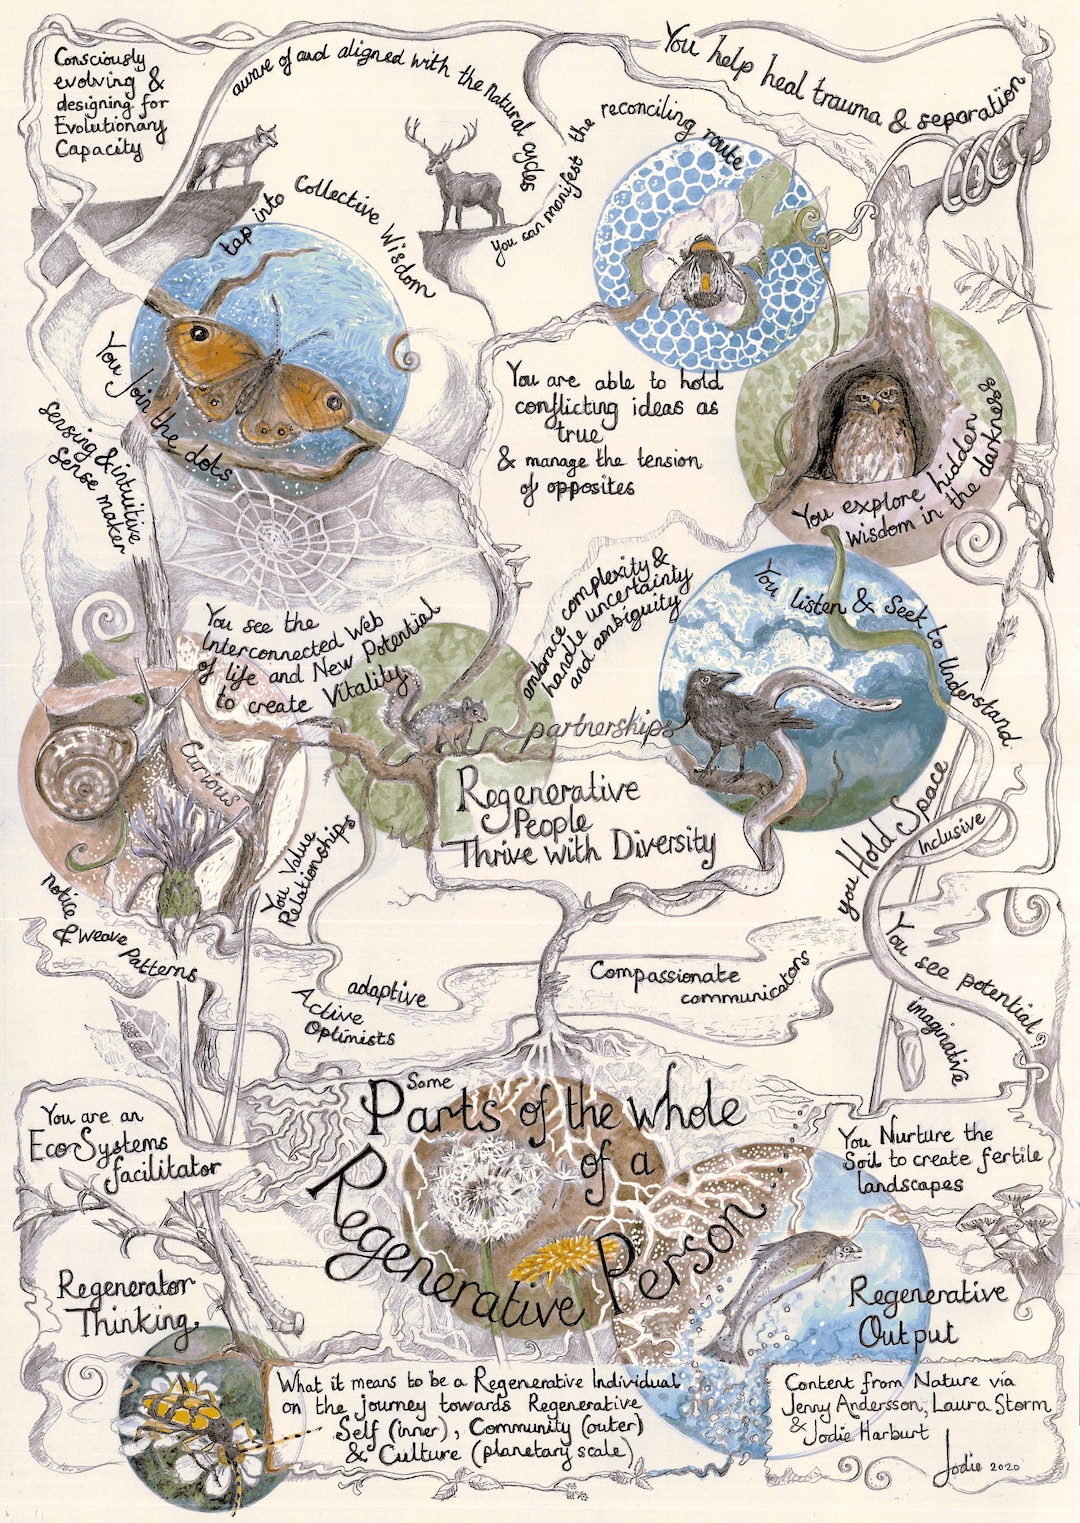 Consciously
evolving &
designing for
Evolutionary
Capacity
aware of and aligned with the natural cycles
You help heal trauma & separation
You can manifest the reconciling route
tap into Collective Wisdom
You join the dots
sensing & intuitive
sense maker
You are able to hold
conflicting ideas as
true
& manage the tension
of opposites
You explore hidden
wisdom in the darkness
embrace complexity &
handle uncertainty
and ambiguity
You listen & seek to Understand
You see the
Interconnected Web
of life and New Potential
to create Vitality
Curious
partnerships
Regenerative
People
Thrive with Diversity
You Value
Relationships
you Hold Space
Inclusive
notice
& weave patterns
adaptive
Active
Optimists
Compassionate
communicators
You see potential
imaginative
Some
Parts of the whole
of a
Regenerative Person
You are an
EcoSystems
facilitator
You Nurture the
Soil to create fertile
landscapes
Regenerator
Thinking
Regenerative
Output
What it means to be a Regenerative Individual
on the journey towards Regenerative
Self (inner), Community (outer)
& Culture (planetary scale)
Content from Nature via
Jenny Andersson, Laura Storm
& Jodie Harburt
Jodie 2020